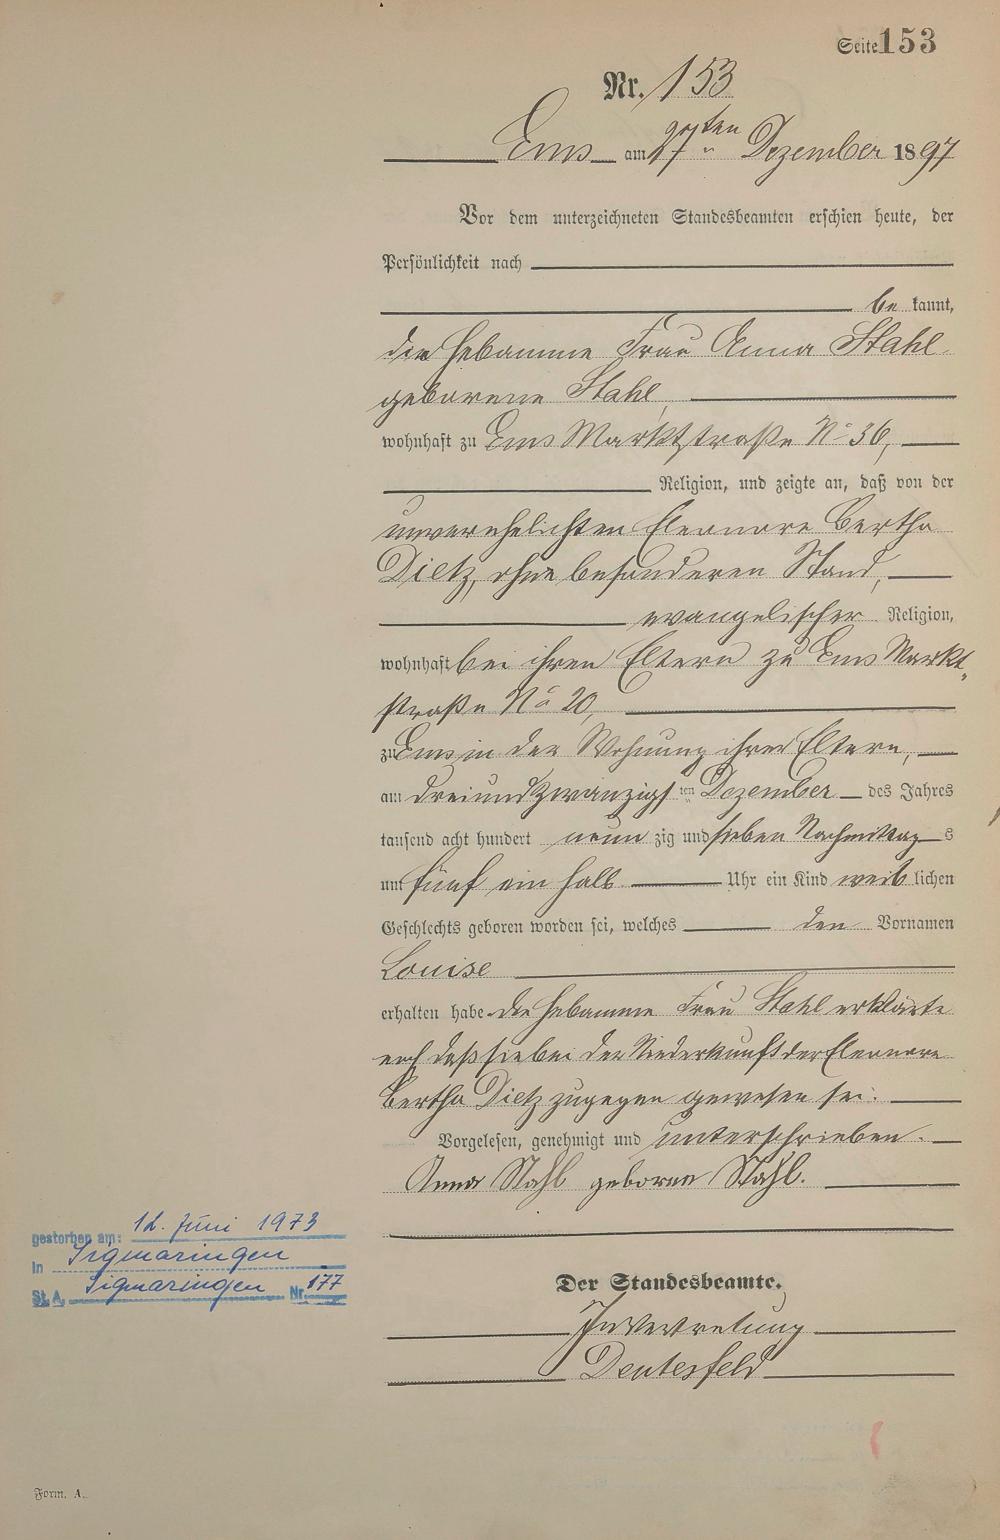 Seite 153
Nr. 153
Ems am 27 ten " Dezember 1897
Vor dem unterzeichneten Standesbeamten erschien heute, der
Persönlichkeit nach
be kannt,
die Hebamme Frau Anna Stahl
geborene Stahl,
wohnhaft zu Ems Marktstraße No 36,
Religion, und zeigte an, daß von der
unverehelichten Eleonore Bertha
Dietz, ohne besonderen Stand,
evangelischer Religion,
wohnhaft bei ihren Eltern zu Ems Markt-
straße No 20,
zu Ems in der Wohnung ihrer Eltern,
am dreiundzwanzigs ten Dezember des Jahres
tausend acht hundert neun zig und sieben Nachmittag s
um fünf ein halb Uhr ein Kind weib lichen
Geschlechts geboren worden sei, welches den Vornamen
Louise
erhalten habe. Die Hebamme Frau Stahl erklärte
noch daß sie bei der Niederkunft der Eleonore
Bertha Dietz zugegen gewesen sei.
Vorgelesen, genehmigt und unterschrieben.
Anna Stahl geborne Stahl.
gestorben am: 12. Juni 1973
in Sigmaringen
St. A. Sigmaringen Nr. 177
Der Standesbeamte.
In Vertretung
Form. A.